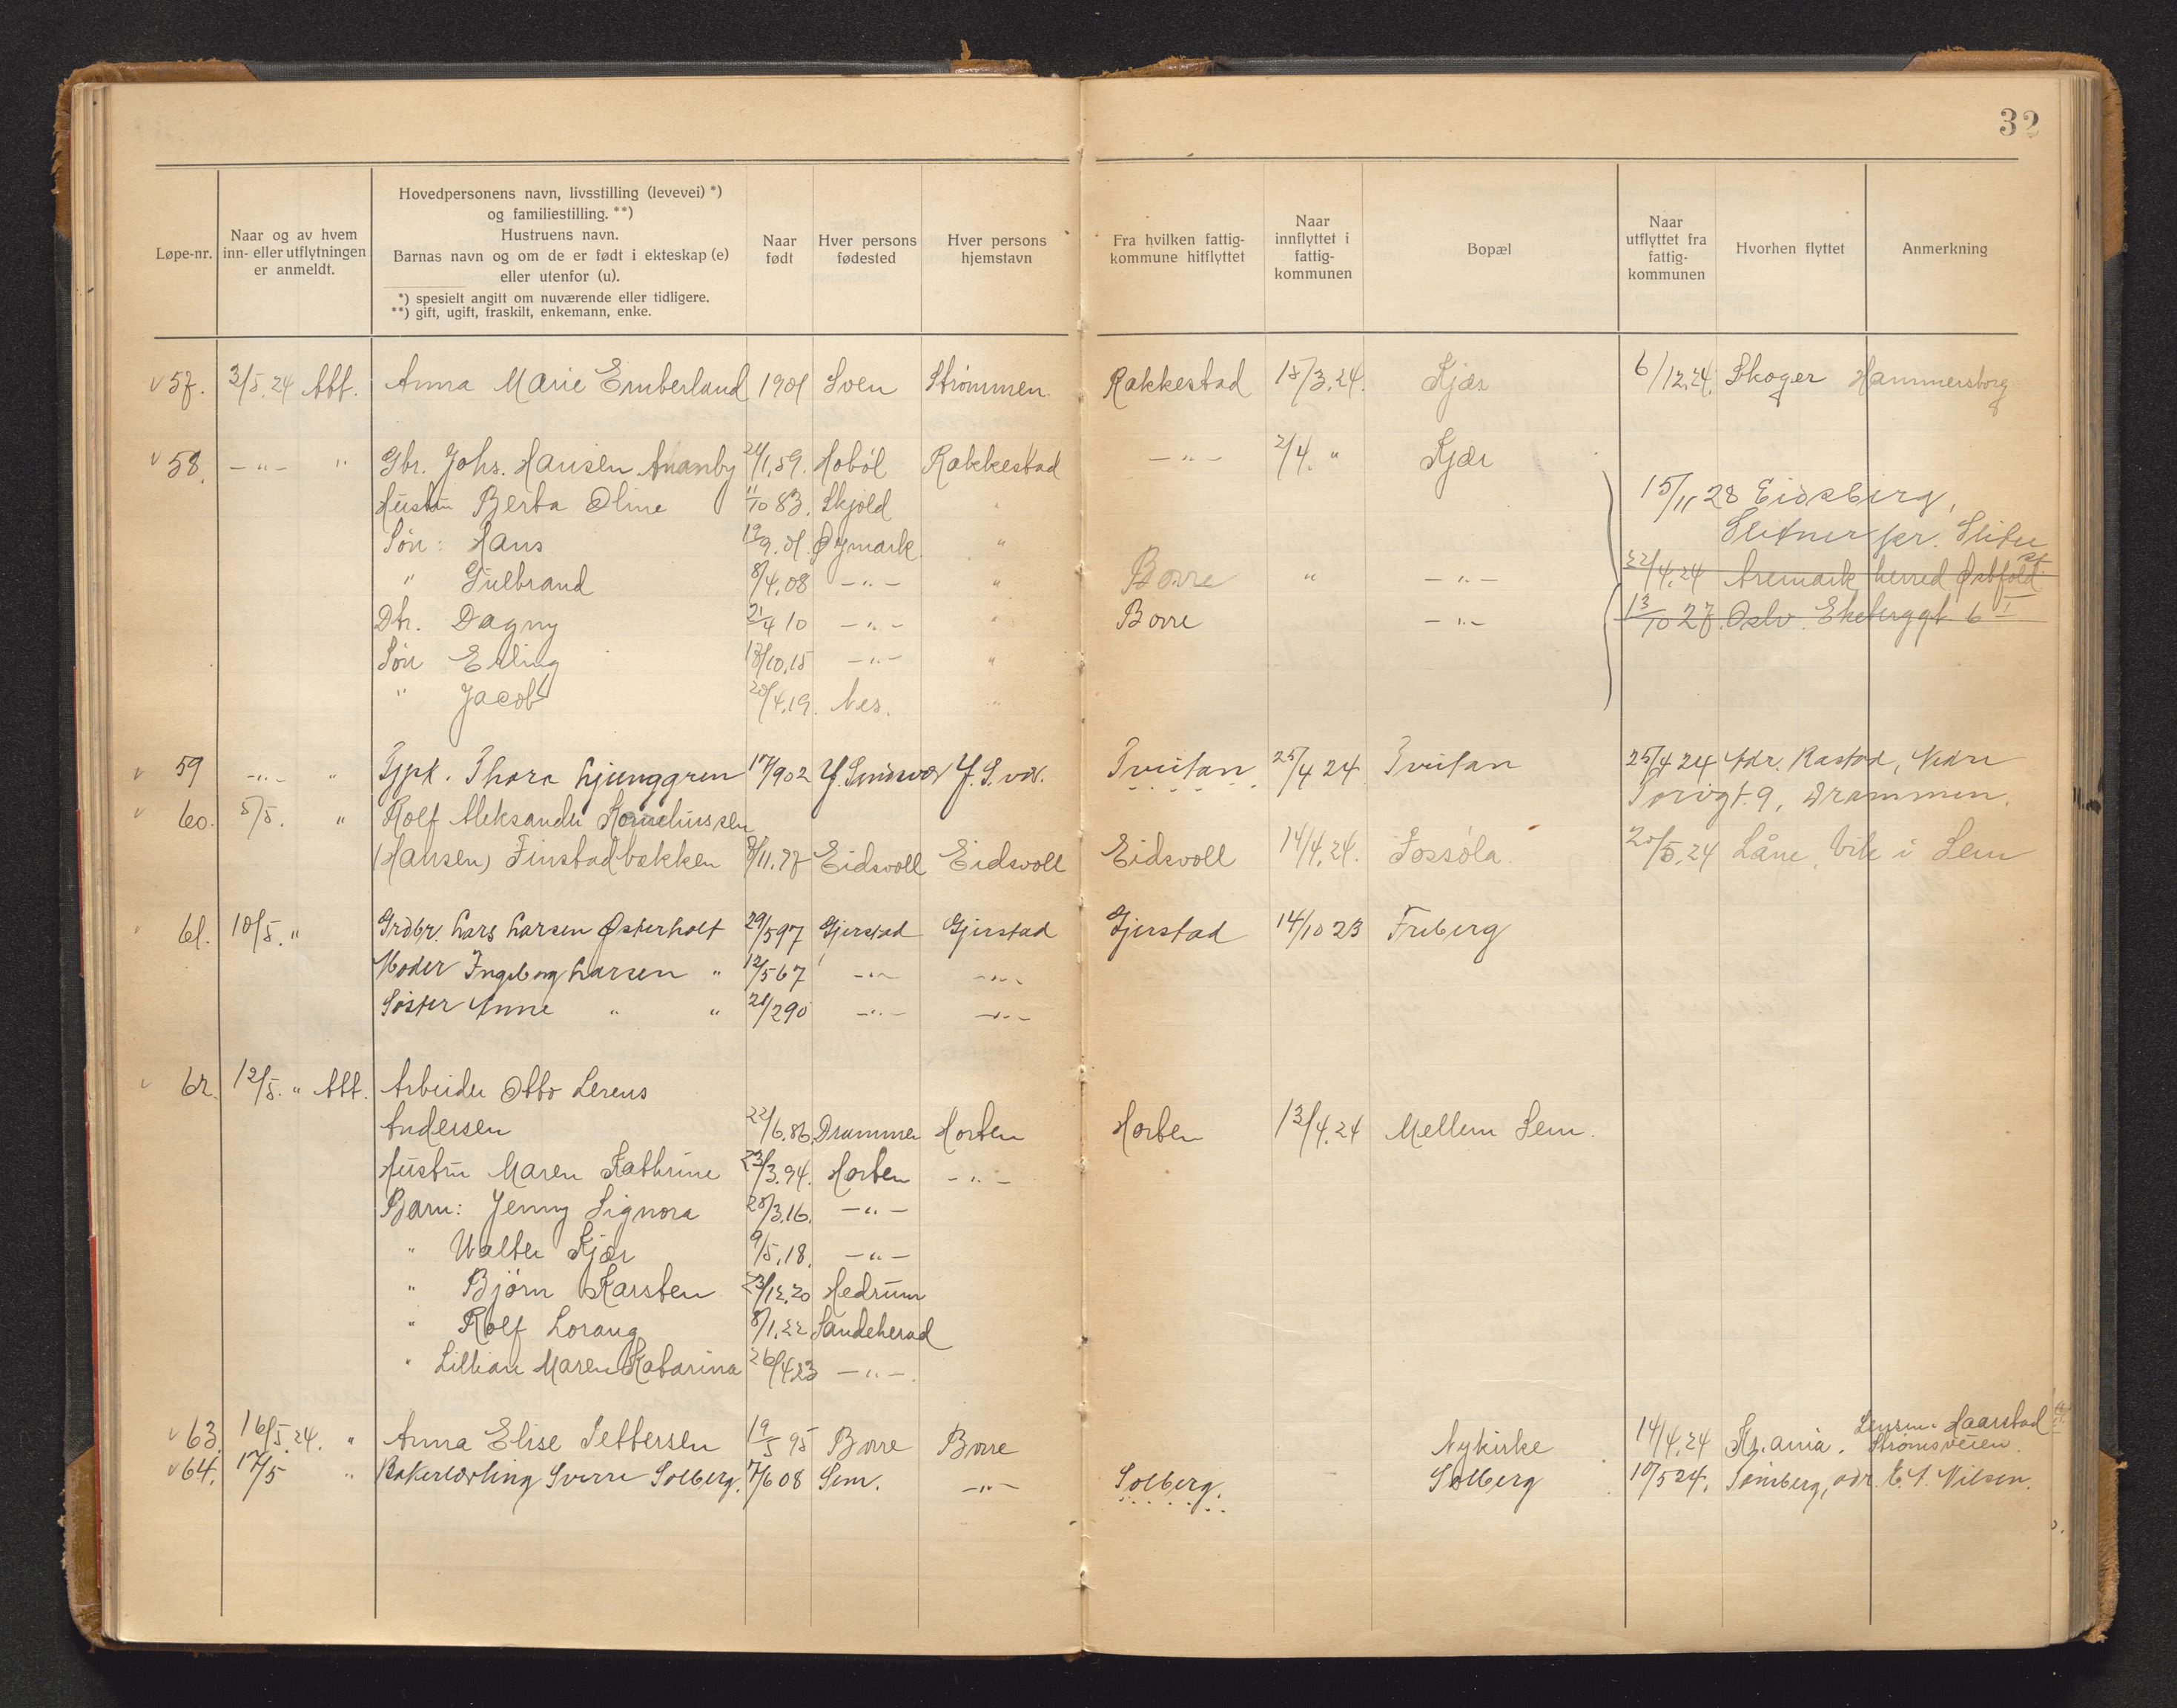 32
Løpe-nr.
Naar og av hvem
inn- eller utflytningen
er anmeldt.
Hovedpersonens navn, livsstilling (levevei) *)
og familiestilling. **)
Hustruens navn.
Barnas navn og om de er født i ekteskap (e)
eller utenfor (u).
*) spesielt angitt om nuværende eller tidligere.
**) gift, ugift, fraskilt, enkemann, enke.
Naar
født
Hver persons
fødested
Hver persons
hjemstavn
Fra hvilken fattig-
kommune hitflyttet
Naar
innflyttet i
fattig-
kommunen
Bopæl
Naar
utflyttet fra
fattig-
kommunen
Hvorhen flyttet
Anmerkning
57. 2/5. 24 Att. Anna Marie Emberland 1901 Sven Strømmen Rakkestad 15/3.24. Kjær 6/12.24. Skoger Hammersborg
58. -"- " Gbr. Johs. Hansen Ananby 24/1.59. Hobøl Rakkestad -"- 2/4. " Kjær
Hustru Berta Oline 11/10 83. Skjold " 15/11 28 Eidsberg,
Søn: Hans 19/9. 01. Øymark " Slitner pr. Slitu st
" Gulbrand 8/4.08 -"- " Borre " -"- 22/4.24 Aremark herred Østfold
Dtr. Dagny 21/4 10 -"- " Borre -"- 13/10 27. Oslo. Ekeberggt 6 I
Søn Erling 18/10.15 -"- "
" Jacob 20/4.19. Nes. "
59 -"- " Tjpk. Thora Ljunggren 17/902 Y. Sandsvær Y. S. vær. Tveitan 25/4 24 Tveitan 25/4 24 Adr. Rastad, Nedre
Torvgt. 9, Drammen.
60. 5/5. " Rolf Aleksander Korneliussen
(Hansen) Finstadbakken 8/11.97 Eidsvoll Eidsvoll Eidsvoll 14/4.24. Fossøla. 20/5.24 Låne, Vik i Sem
61. 10/5. " Grdbr. Lars Larsen Østerholt 29/597 Gjerstad Gjerstad Gjerstad 14/10 23 Freberg
Moder Ingeborg Larsen " 12/567 -"- -"-
Søster Anne " " 21/290 -"- -"-
62. 12/5. " Att. Arbeider Otto Lerens
Andersen 22/6.86. Drammen Horten Horten 13/4.24 Mellem Sem.
Hustru Maren Kathrine 23/3.94. Horten -"-
Barn: Jenny Signora 28/3.16. -"-
" Walter Kjær 9/5.18. -"-
" Bjørn Karsten 23/12.20 Hedrum
" Rolf Lorang 8/1.22 Sandeherad
" Lillian Maren Katarina 26/4.23 -"-.
63. 16/5.24. " Anna Elise Pettersen 19/5 95 Borre Borre Nykirke 14/4.24 Kr.ania. Haarstad
Strømsveien.
64. 17/5 " Bakerlærling Sverre Solberg. 7/6 08 Sem. -"- Solberg. Solberg 10/5 24. Tønsberg, adr. C. A. Nilsen.